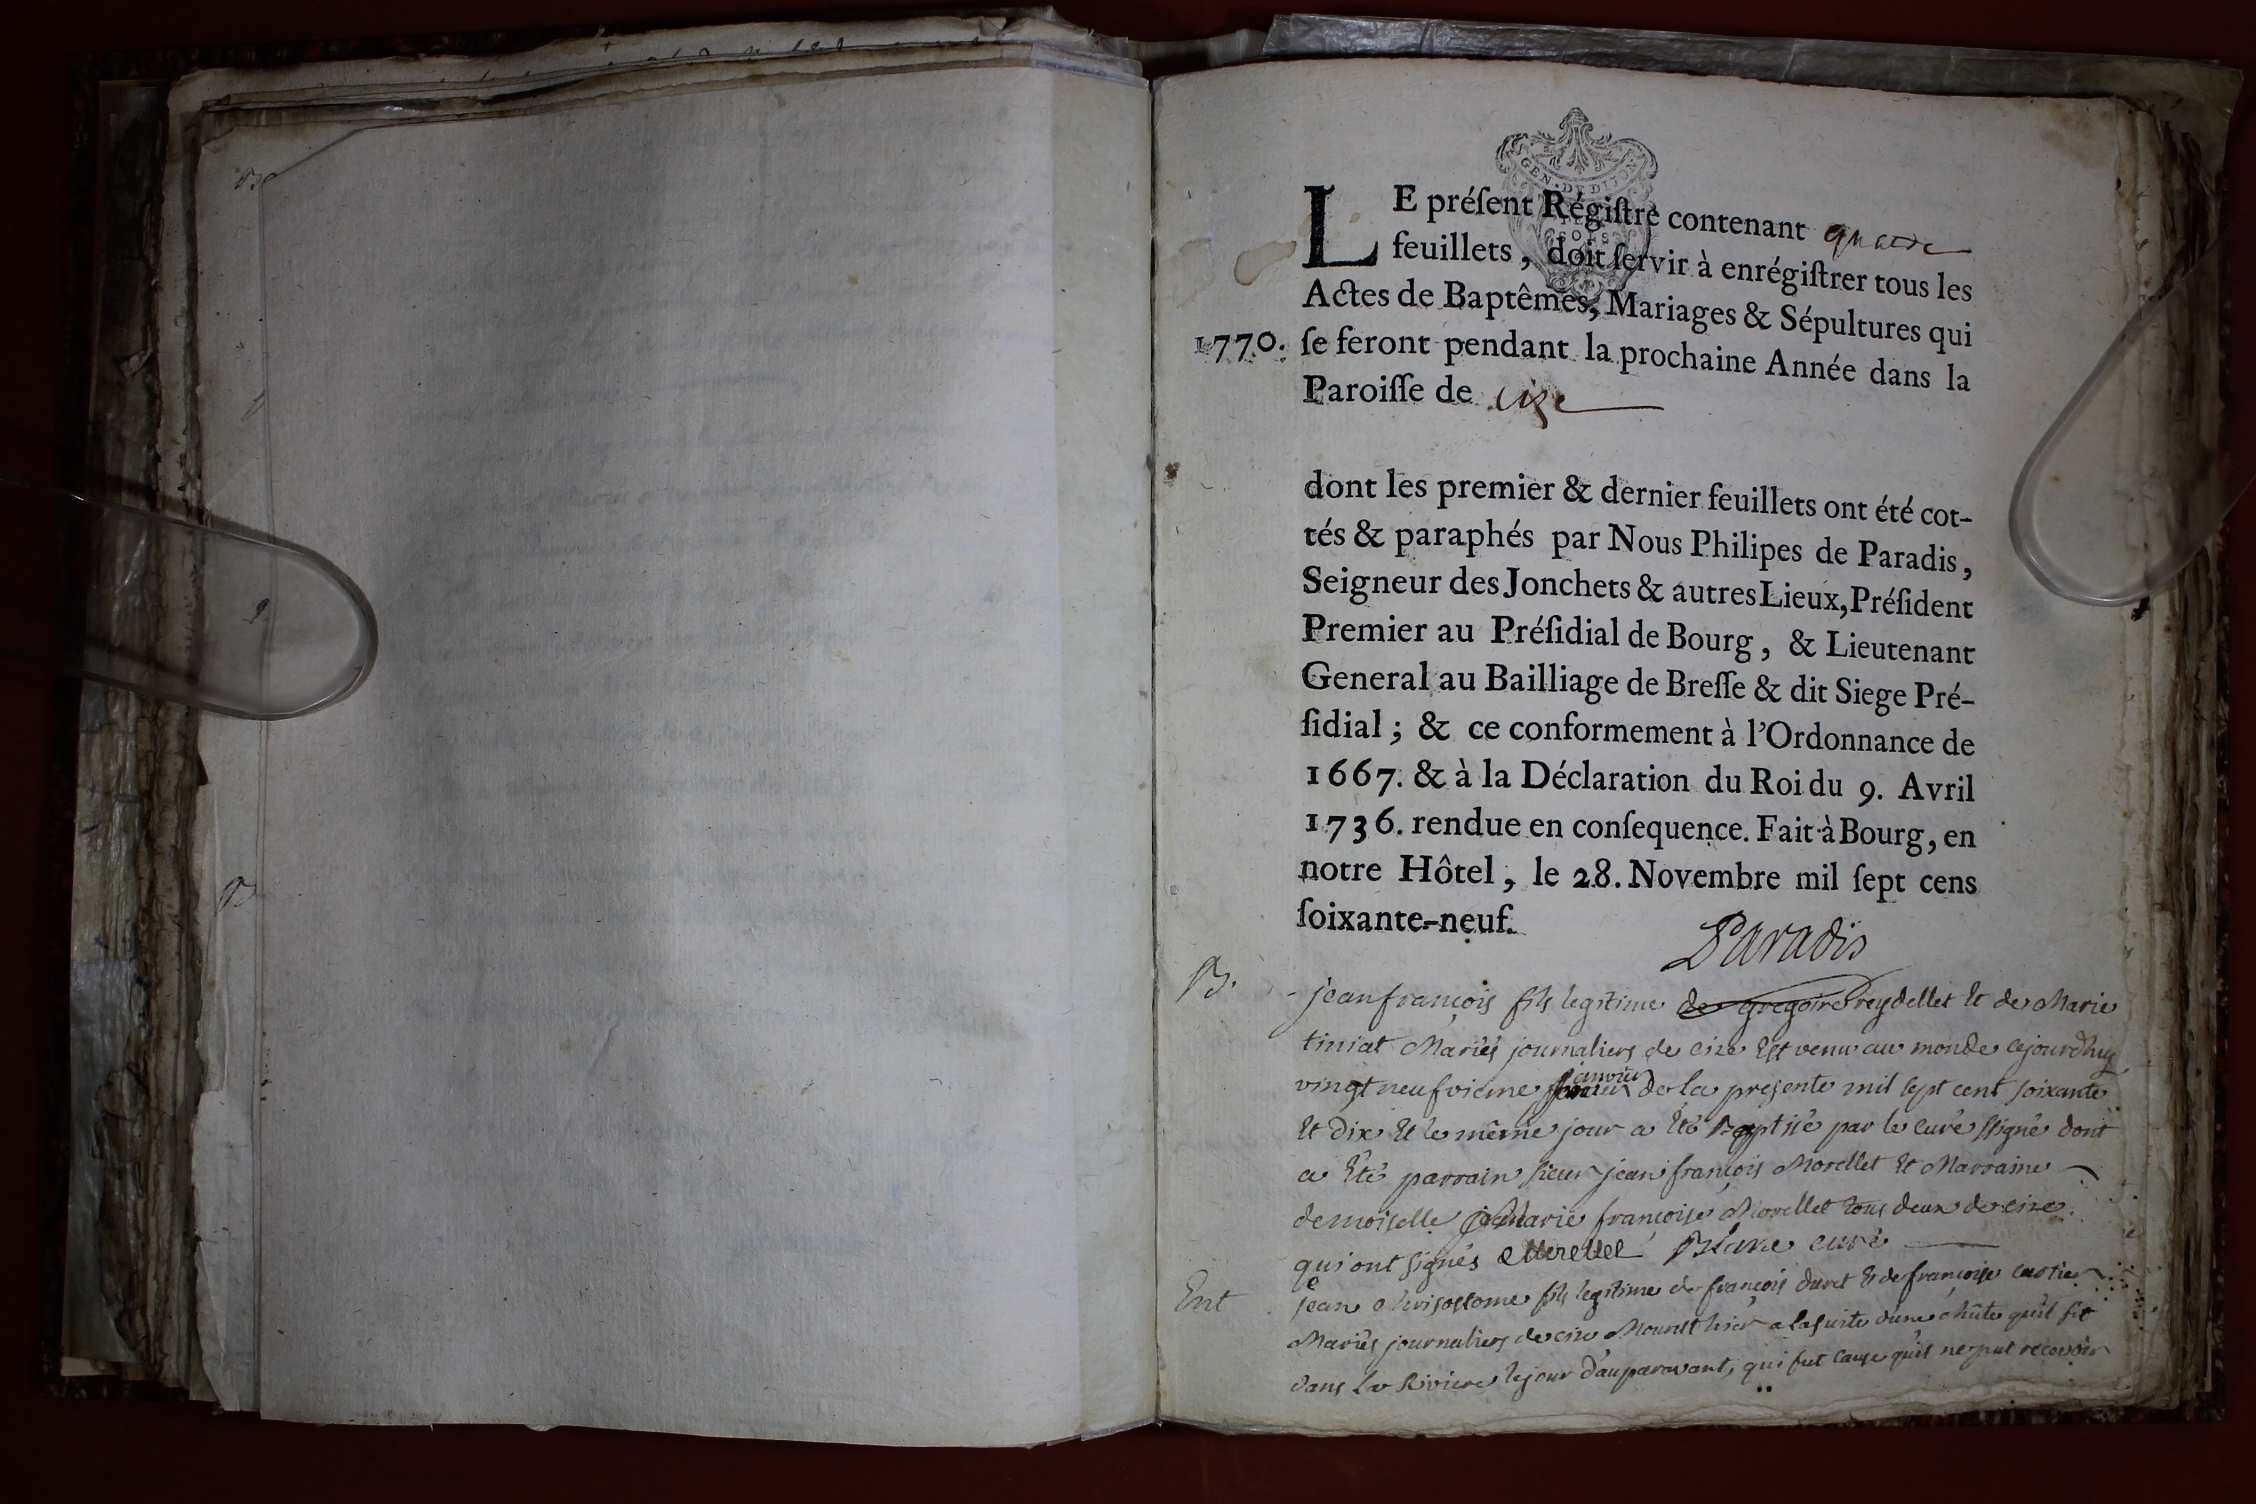 GEN. DE DIJON
SOLS
LE préſent Régiſtre contenant quatre
feuillets, doit ſervir à enrégiſtrer tous les
Actes de Baptêmes, Mariages & Sépultures qui
1770. ſe feront pendant la prochaine Année dans la
Paroiſſe de cize
dont les premier & dernier feuillets ont été cot-
tés & paraphés par Nous Philipes de Paradis,
Seigneur des Jonchets & autres Lieux, Préſident
Premier au Préſidial de Bourg, & Lieutenant
General au Bailliage de Breſſe & dit Siege Pré-
ſidial; & ce conformement à l'Ordonnance de
1667. & à la Déclaration du Roi du 9. Avril
1736. rendue en conſequence. Fait à Bourg, en
notre Hôtel, le 28. Novembre mil ſept cens
ſoixante-neuf.
Paradis
B. jean françois fils legitime de gregoire reydellet Et de Marie
tiniat Mariés journaliers de cize Est venu au monde cejourdhuy
vingt neufvieme janvier de la presente mil sept cent soixante
Et dix Et le même jour a Eté Baptisé par le curé ssigné dont
a Eté parrain sieur jean françois Morellet Et Marraine
demoiselle Marie françoise Morellet tous deux de cize
qui ont signés Morellet curé
Ent jean chrisostome fils legitime de françois duret & de françoise
Mariés journaliers de cize Mourut hier a la suite d'une chûte qu'il fit
dans la Riviere le jour d'auparavant, qui fut cause qu'il ne put recevoir